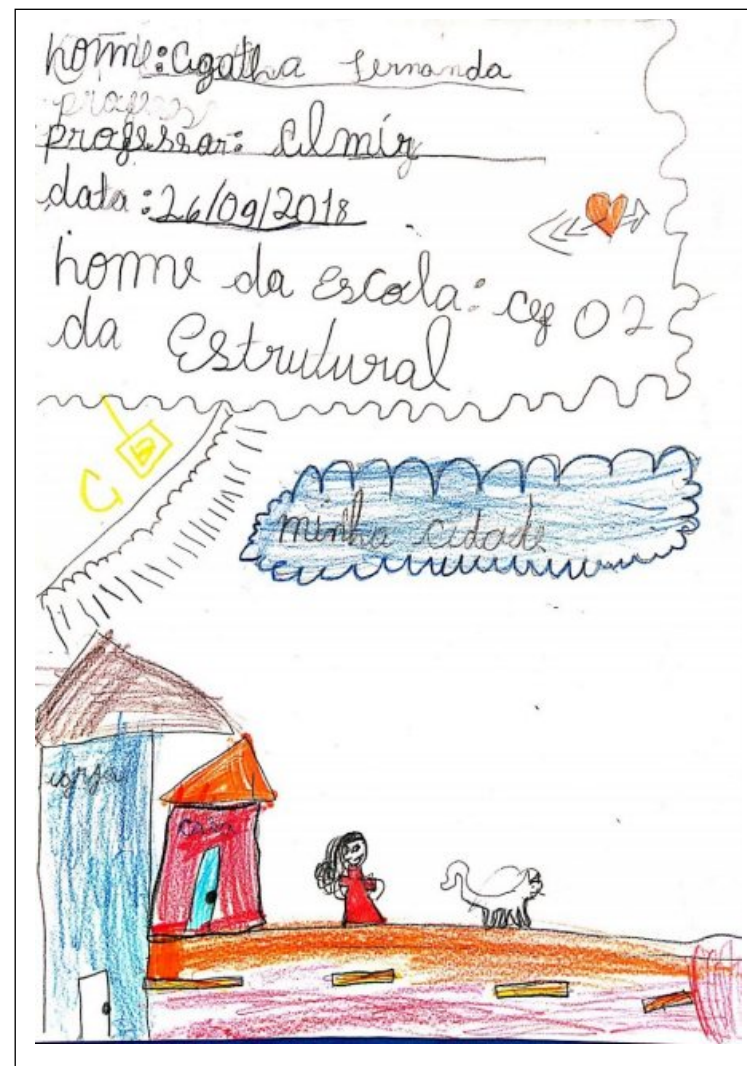 nome: Agatha Fernanda
profess
professor: Almir
data: 26/09/2018
nome da escola: cef 02
da Estrutural
minha cidade
igrja
casa